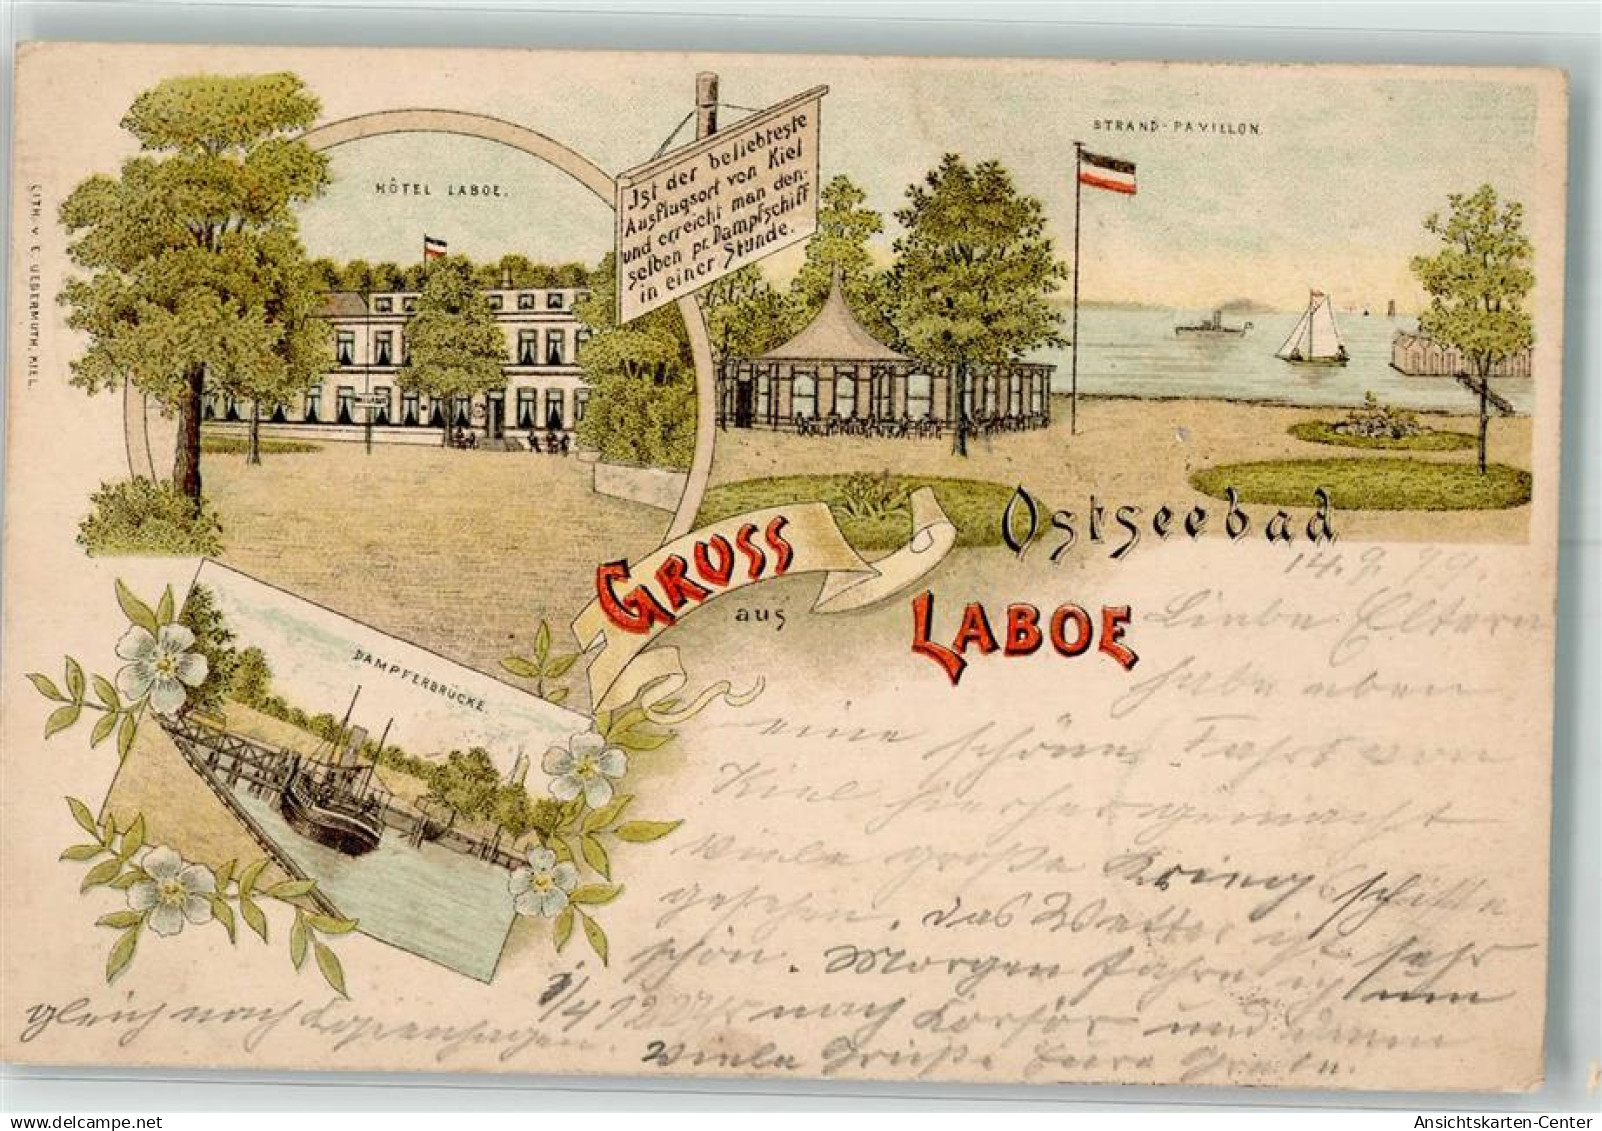 HÔTEL LABOE.
Ist der beliebteste
Ausflugsort von Kiel
und erreicht man den-
selben pr. Dampfschiff
in einer Stunde.
STRAND-PAVILLON.
LITH. V. C. UEBERMUTH, KIEL.
GRUSS
aus
Ostseebad
LABOE
DAMPFERBRÜCKE.
14. 9.
Liebe Eltern
habe eben
eine schöne Fahrt von
Kiel hierher gemacht
viele große Kriegsschiffe
gesehen. Das Wetter ist sehr
schön. Morgen fahre ich um
nach Korsör und dann
gleich nach Kopenhagen.
Viele Grüße Eure
Ansichtskarten-Center